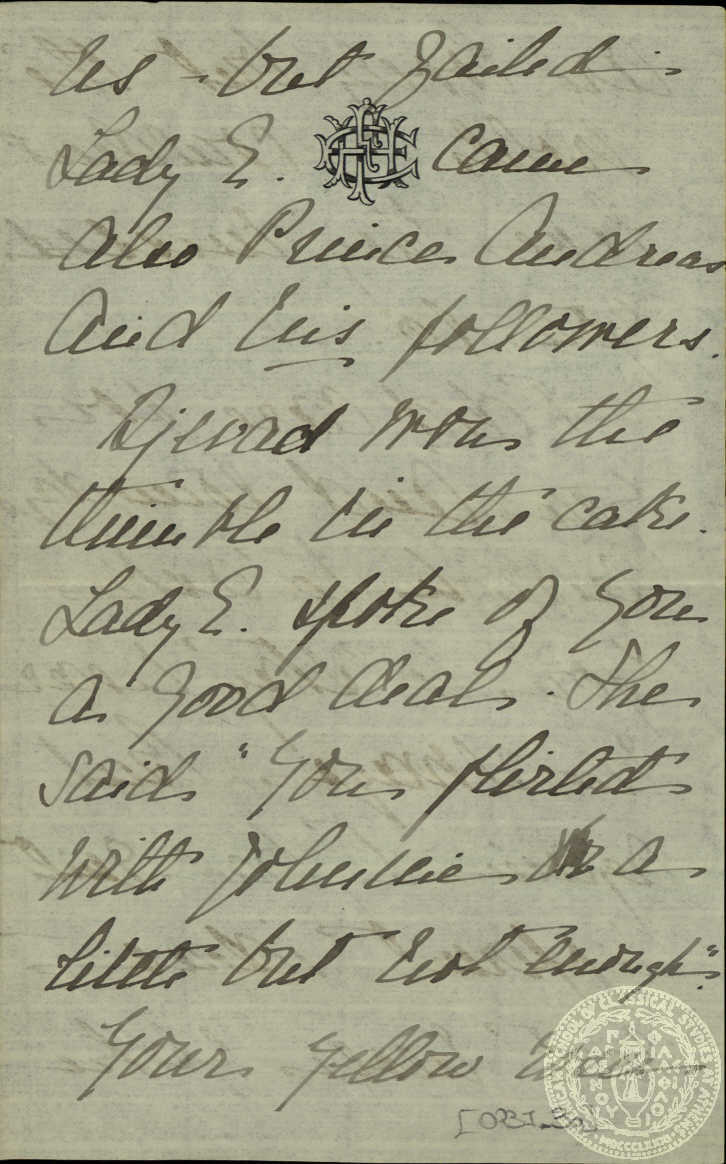 us - but failed.
Lady E. came
also Prince Andreas
and his followers.
Djevad won the
thimble in the cake.
Lady E. spoke of you
a good deal. She
said "You flirted
with Johnnie a
little but not enough".
Your yellow